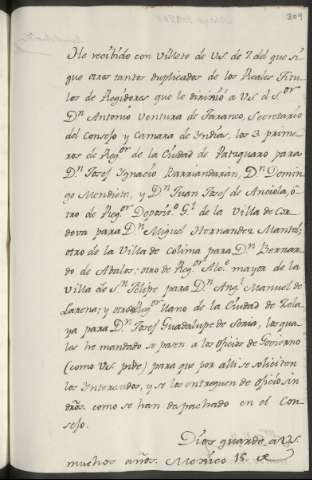 309
He recibido con Villete de V.S. de 7. del que si
gue otros tantos duplicados de los Reales Titu
los de Regidores que le dirixió a V.S. el S.or
D.n Antonio Ventura de Taranco, Secretario
del Consejo y Camara de Yndias, los 3. prime
ros de Reg.or de la Ciudad de Patzquaro para
D.n Josef Ygnacio Barriandaran, D.n Domin
go Mendieta, y D.n Juan Josef de Anciola, ó
tro de Reg.or Depos.o G.l de la Villa de Cor
dova para D.n Miguel Hernandez Mantel;
otro de la Villa de Colima para D.n Bernar
do de Abalos; otro de Reg.or Alc.e mayor de la
Villa de S.n Felipe para D.n Ang.l Manuel de
Larena; y otro Reg.or llano de la Ciudad de Zela
ya para D.n Josef Guadalupe de Soria, los qua
les he mandado se pasen a los oficios de Govierno
(como V.S. pide) para que por alli se soliciten
los Ynteresados, y se les entreguen de oficio sin
dros. como se han despachado en el Con
sejo.
Dios guarde a V.S.
muchos años. Mexico 18. de